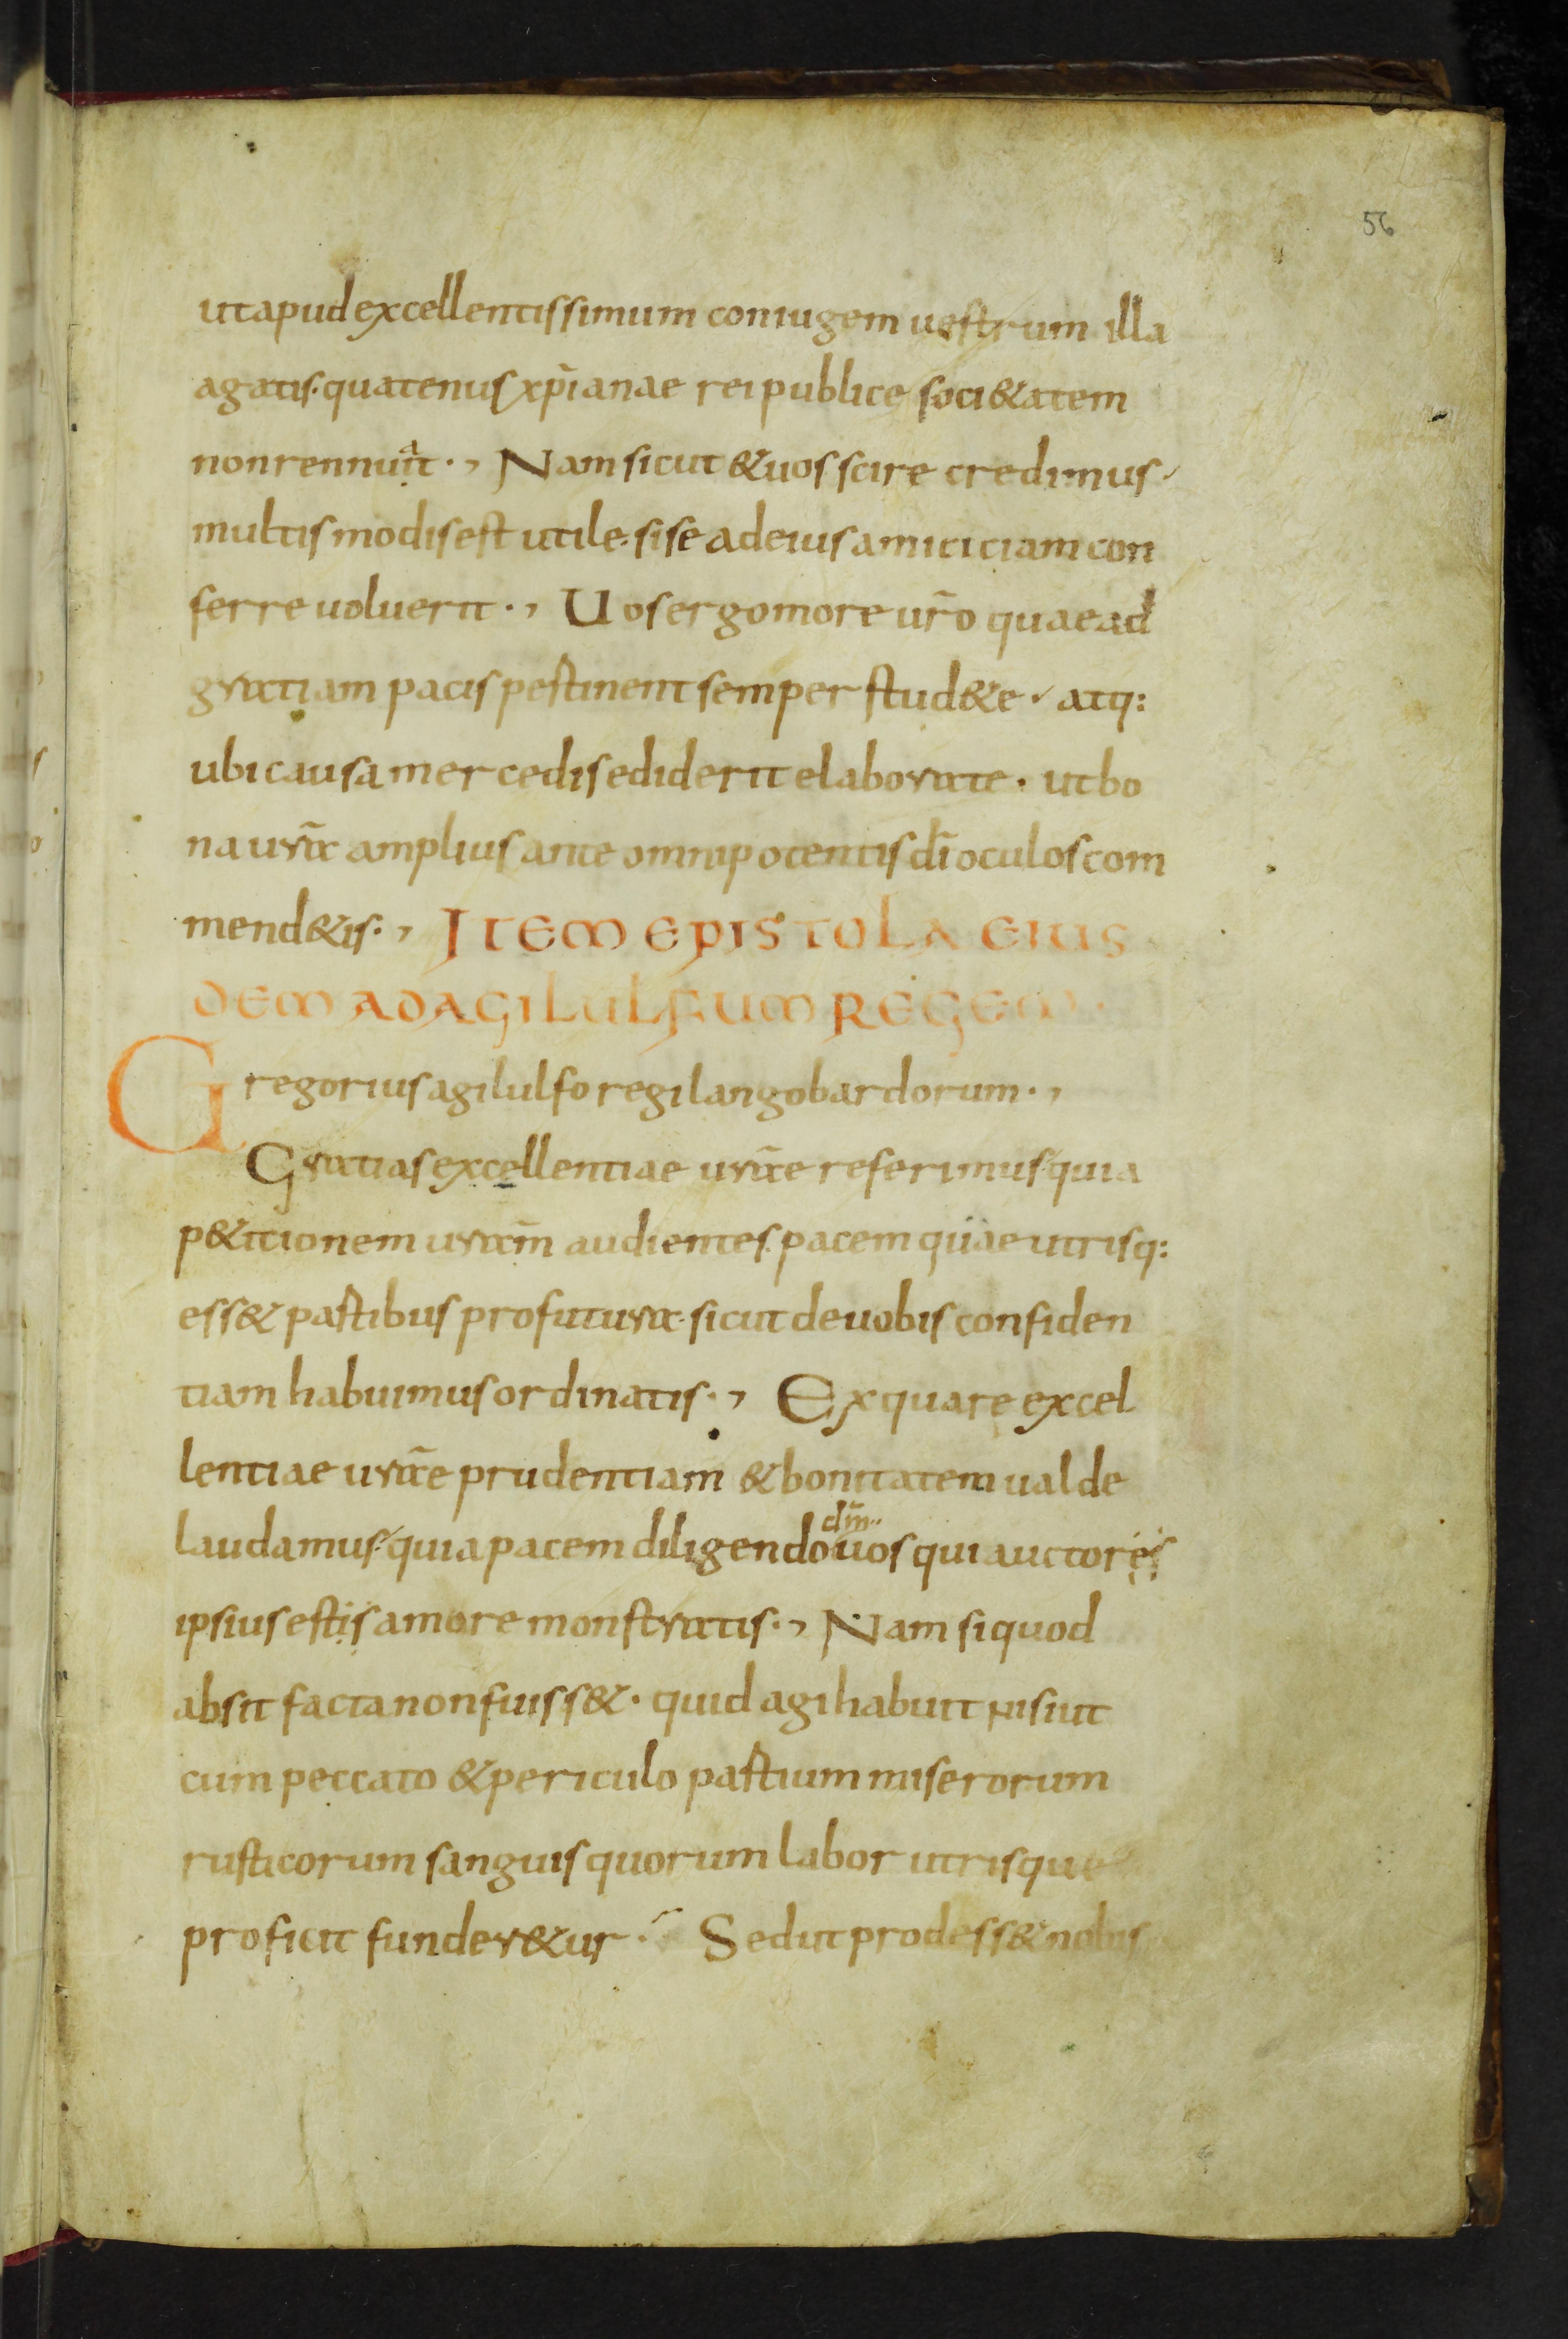 56
ut apud excellentissimum coniugem uestrum illa
agatis. quatenus xp̄ianae rei publice soci&atem
non rennuat ·, Nam sicut & uos scire credimus
multis modis est utile. si se ad eius amiciciam con
ferre uoluerit ·, Uos ergo more ur̄o quae ad
gratiam pacis pertinent semper stud&e · atq:
ubi causa mercedis ediderit elaborate · ut bo
na ur̄a amplius ante omnipotentis dī oculos com
mend&is ·, ITEM EPISTOLA EIUS
DEM AD AGILULFUM REGEM ·
Gregorius agilulfo regi langobardorum ·,
Gratias excellentiae ur̄ae referimus quia
p&itionem uram̄ audientes. pacem quae utrisq:
ess& partibus profutura. sicut de uobis confiden
tiam habuimus ordinatis ·, Ex qua re excel
lentiae ur̄ae prudentiam & bonitatem ualde
dm̄
laudamus. quia pacem diligendo uos qui auctores
ipsius estis amore monstratis ·, Nam si quod
absit facta non fuiss& · quid agi habuit nisi ut
cum peccato & periculo partium miserorum
rusticorum sanguis quorum labor utrisque
proficit funder&ur · Sed ut prodess& nobis